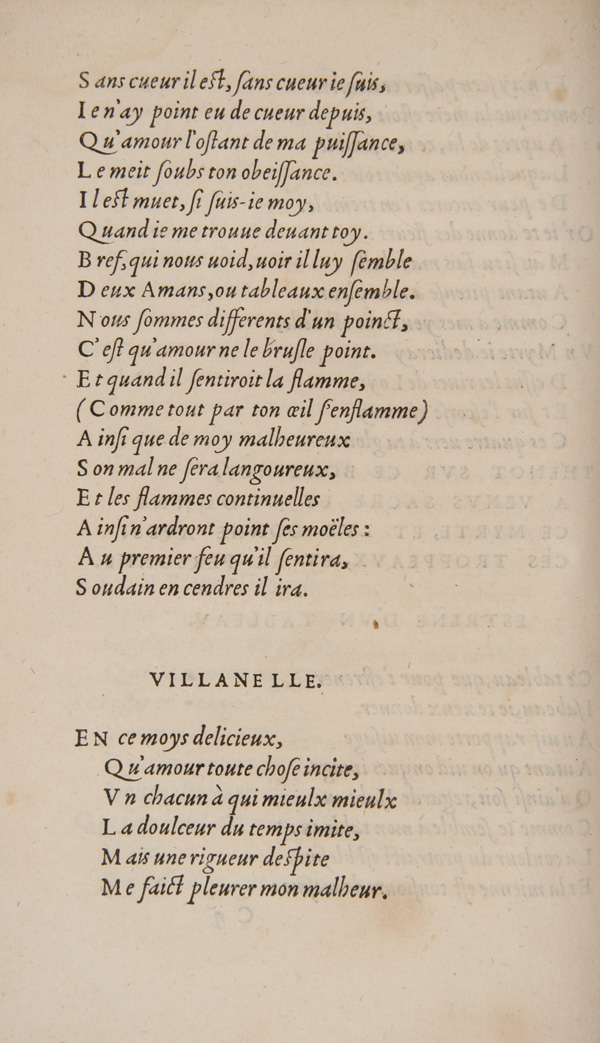 Sans cueur il est, ſans cueur ie ſuis,
Ie n'ay point eu de cueur depuis,
Qu'amour l'oſtant de ma puiſſance,
Le meit ſoubs ton obeiſſance.
Il est muet, ſi ſuis-ie moy,
Quand ie me trouue deuant toy.
Bref, qui nous uoid, uoir il luy ſemble
Deux Amans, ou tableaux enſemble.
Nous ſommes differents d'un poinct,
C'eſt qu'amour ne le bruſle point.
Et quand il ſentiroit la flamme,
(Comme tout par ton œil ſ'enflamme)
Ainſi que de moy malheureux
Son mal ne ſera langoureux,
Et les flammes continuelles
Ainſi n'ardront point ſes moëles :
Au premier feu qu'il ſentira,
Soudain en cendres il ira.
VILLANELLE.
EN ce moys delicieux,
Qu'amour toute choſe incite,
Vn chacun à qui mieulx mieulx
La doulceur du temps imite,
Mais une rigueur deſpite
Me faict pleurer mon malheur.